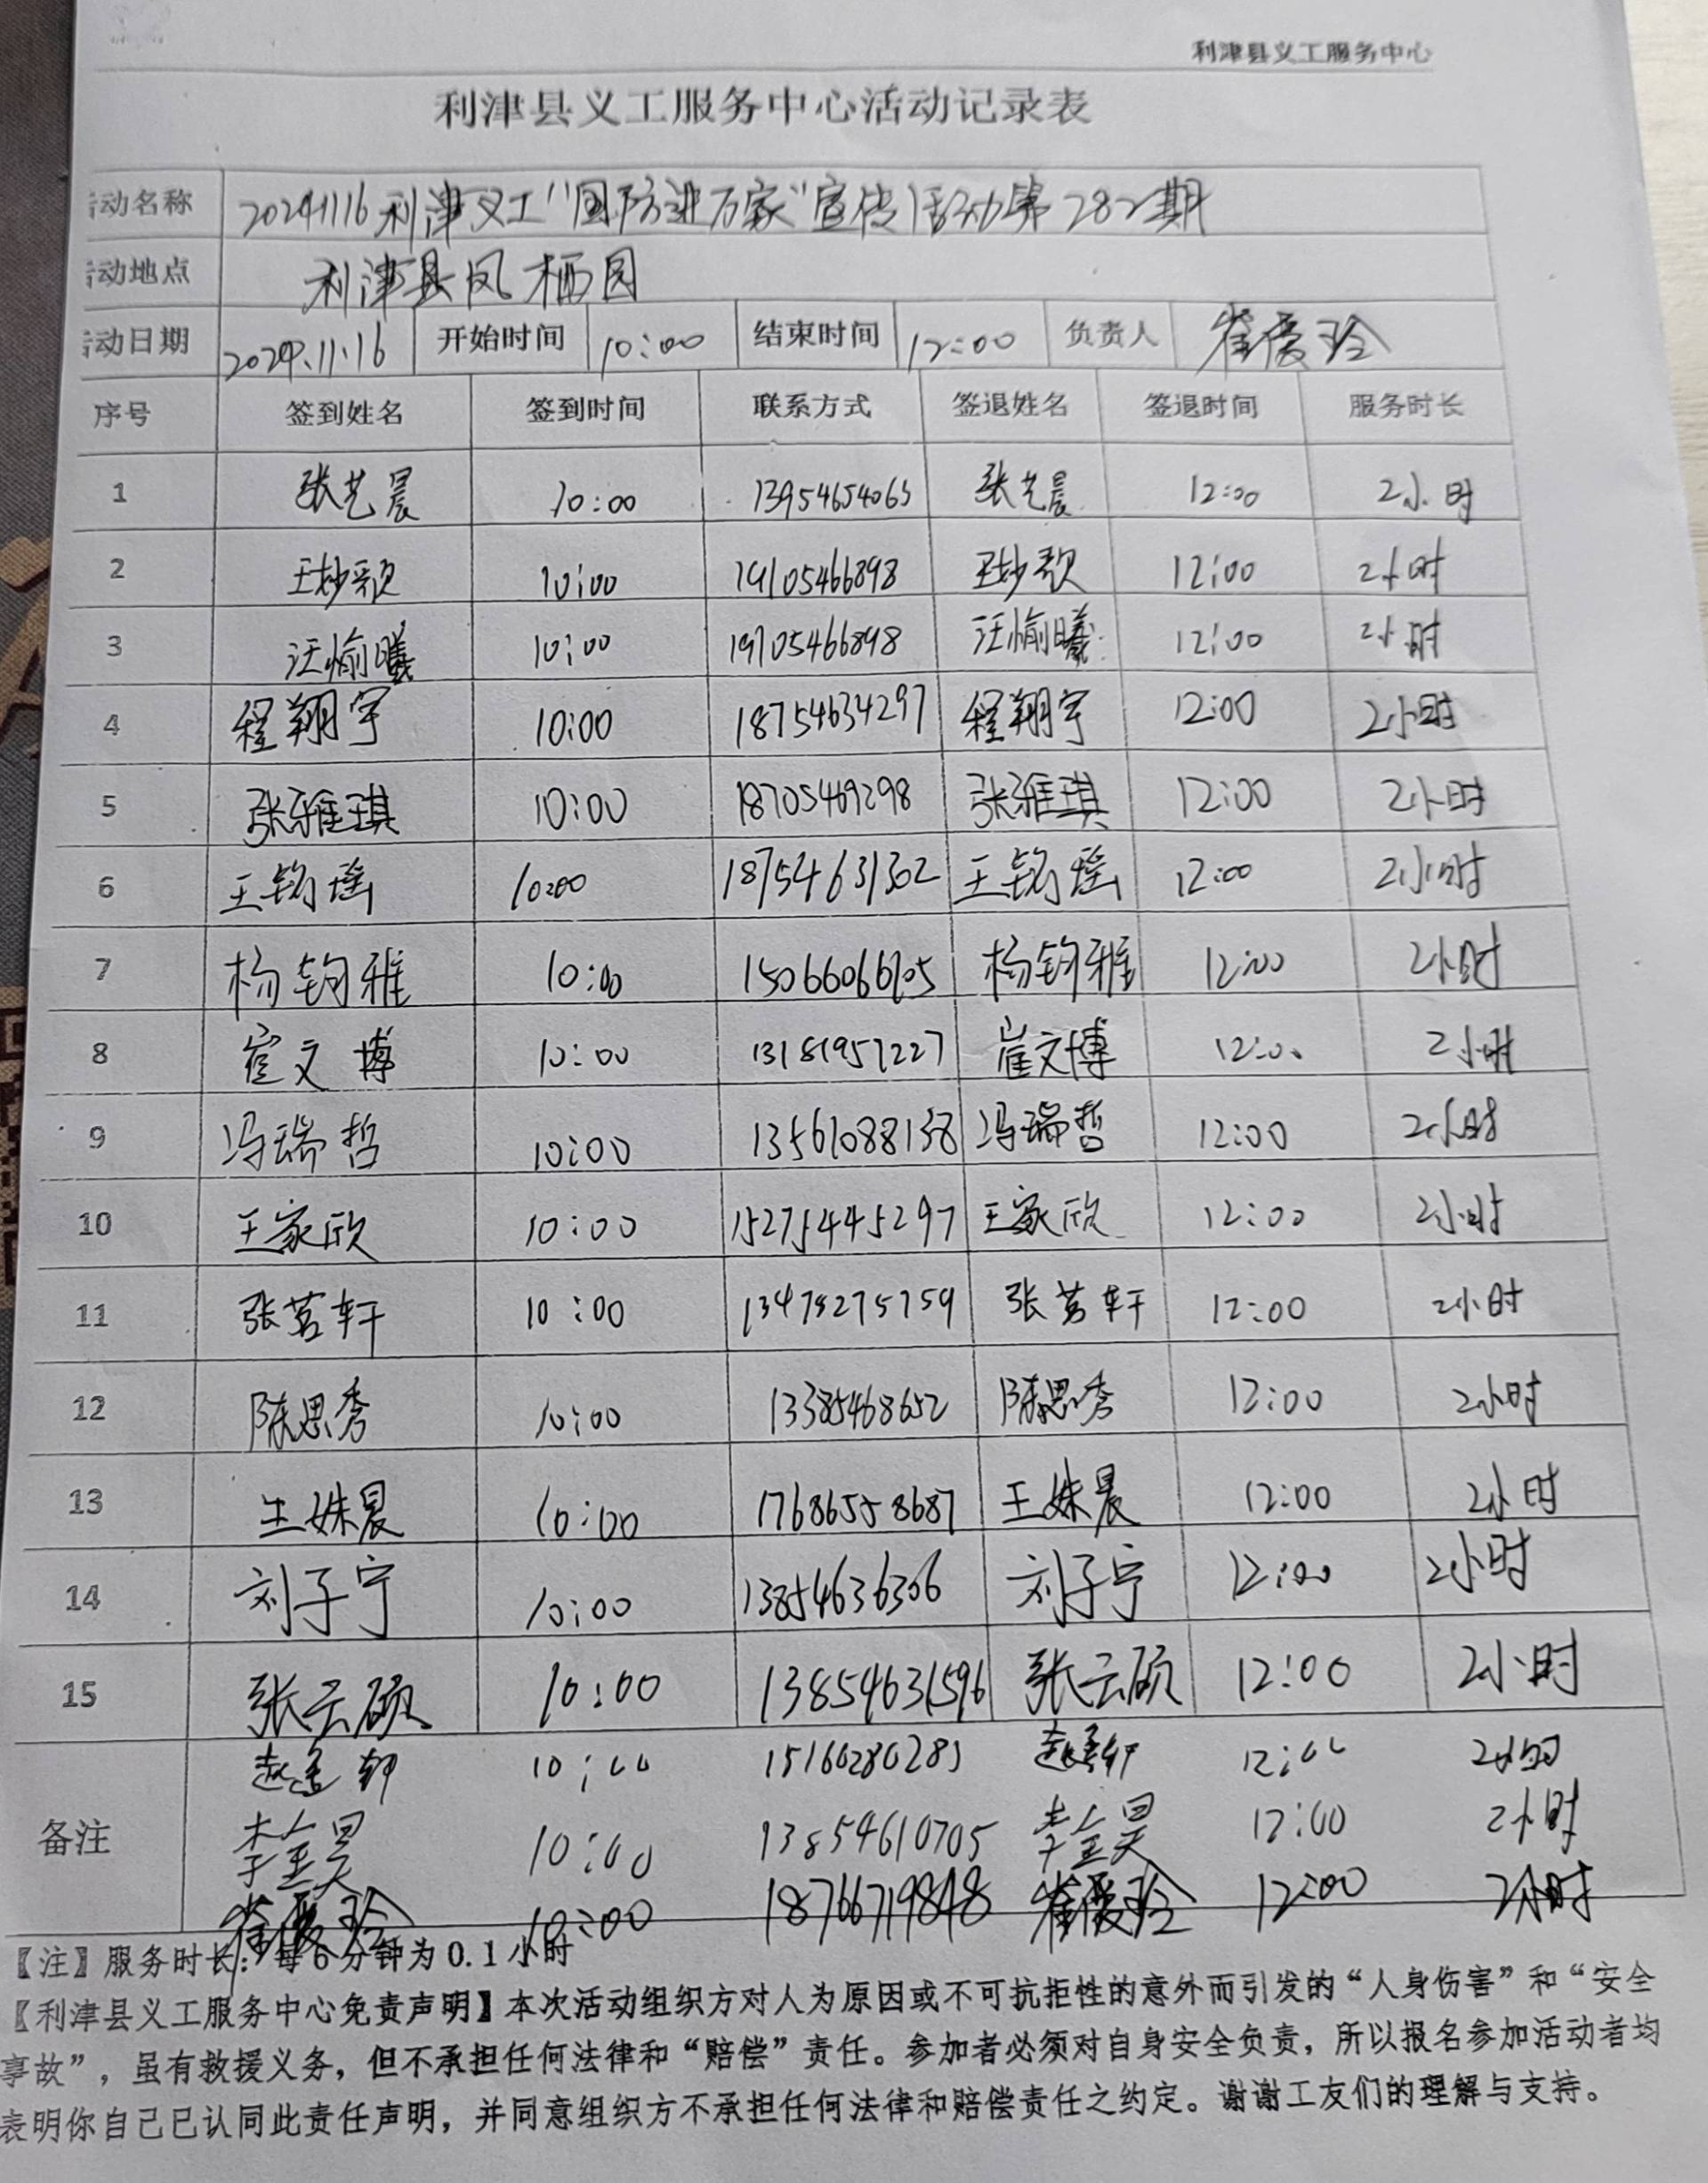 利津县义工服务中心
利津县义工服务中心活动记录表
活动名称 20241116利津义工“国防进万家”宣传活动第282期
活动地点 利津县凤栖园
活动日期 2024.11.16 开始时间 10:00 结束时间 12:00 负责人 崔爱玲
序号 签到姓名 签到时间 联系方式 签退姓名 签退时间 服务时长
1 张艺晨 10:00 13954654065 张艺晨 12:00 2小时
2 王妙歌 10:00 19105466898 王妙歌 12:00 2小时
3 汪愉曦 10:00 19105466898 汪愉曦 12:00 2小时
4 程翔宇 10:00 18754634297 程翔宇 12:00 2小时
5 张雅琪 10:00 18705469298 张雅琪 12:00 2小时
6 王钧瑶 10:00 18754631302 王钧瑶 12:00 2小时
7 杨钧雅 10:00 杨钧雅 12:00 2小时
8 崔文博 10:00 13181957227 崔文博 12:00 2小时
9 冯瑞哲 10:00 13561088138 冯瑞哲 12:00 2小时
10 王家欣 10:00 15275445297 王家欣 12:00 2小时
11 张茗轩 10:00 张茗轩 12:00 2小时
12 陈思秀 10:00 13385468652 陈思秀 12:00 2小时
13 王姝晨 10:00 17686558687 王姝晨 12:00 2小时
14 刘子宁 10:00 13854636306 刘子宁 12:00 2小时
15 张云硕 10:00 13854631596 张云硕 12:00 2小时
10:00 12:00 2小时
备注 李金昊 10:00 13854610705 李金昊 12:00 2小时
崔爱玲 10:00 18766719848 崔爱玲 12:00 2小时
【注】服务时长：每6分钟为0.1小时
【利津县义工服务中心免责声明】本次活动组织方对人为原因或不可抗拒性的意外而引发的“人身伤害”和“安全
事故”，虽有救援义务，但不承担任何法律和“赔偿”责任。参加者必须对自身安全负责，所以报名参加活动者均
表明你自己已认同此责任声明，并同意组织方不承担任何法律和赔偿责任之约定。谢谢工友们的理解与支持。